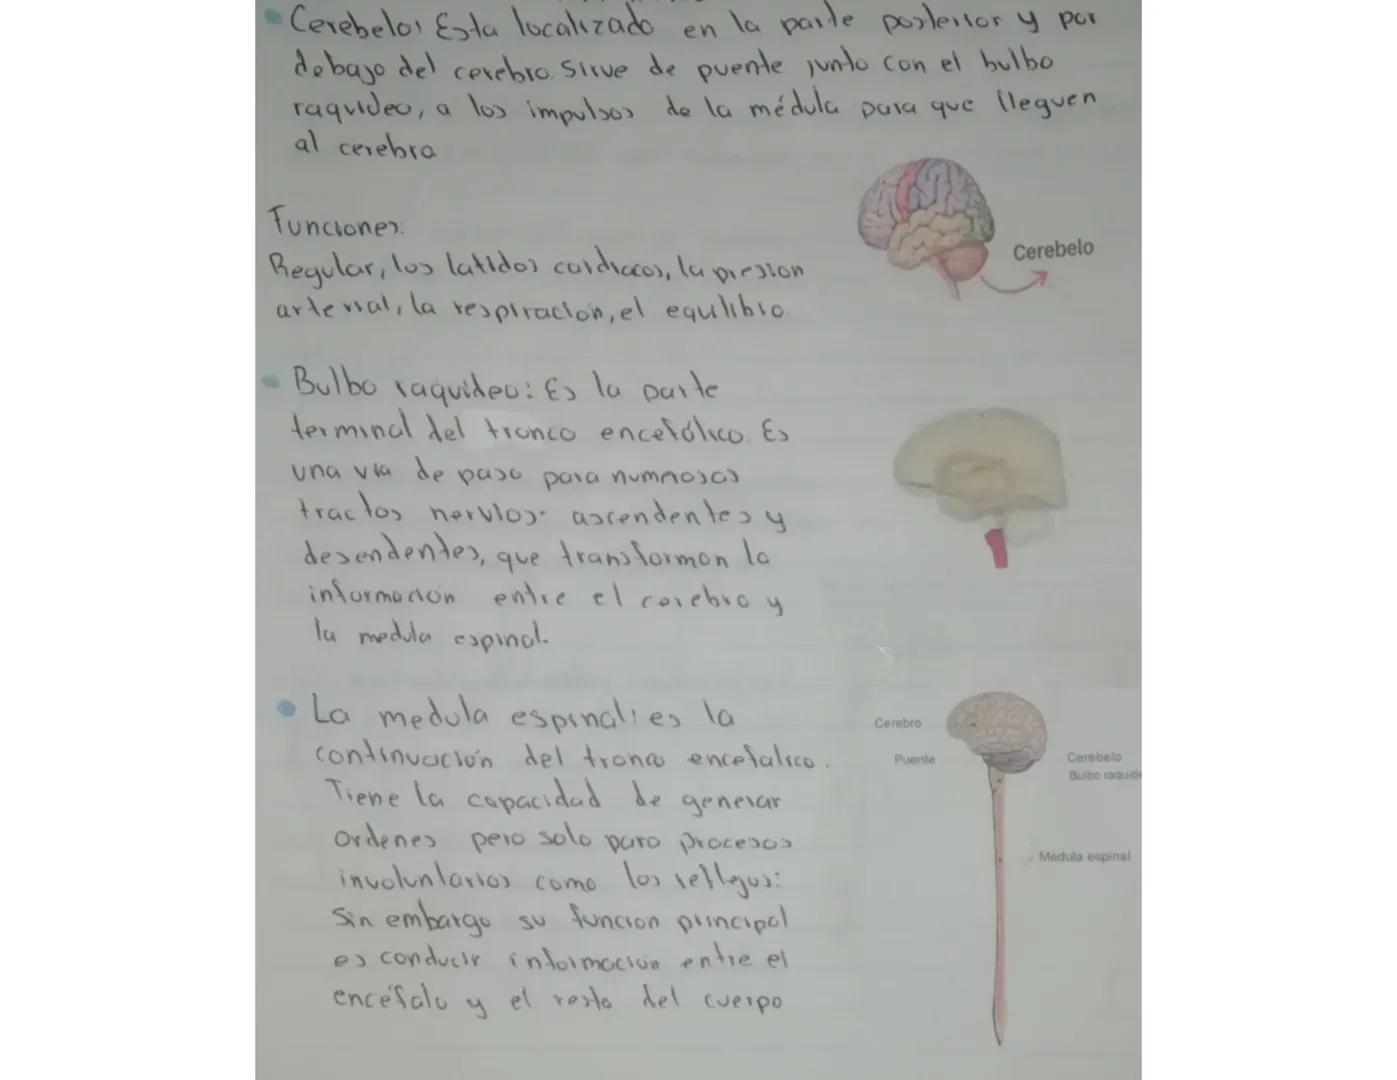 Cerebelo: Esta localizado en la parte posterior y por
debajo del cerebro. Sirve de puente junto con el bulbo
raquideo, a los impulsos de la médula para que lleguen
al cerebro
Funciones:
Regular, los latidos cardiacos, la presion
arterial, la respiración, el equilibrio.
Cerebelo
Bulbo raquideo: Es la parte
terminal del tronco encefálico. Es
una via de paso para numerosos
tractos nervios: ascendentes y
desendentes, que transforman la
información entre el cerebro y
la medula espinal.
La medula espinal: es la
continuación del tronco encefalico.
Tiene la capacidad de generar
ordenes pero solo para procesos
involuntarios como los reflejos:
Sin embargo su funcion principal
es conducir informacion entre el
encéfalo y el resto del cuerpo
Cerebro
Puente
Cerebelo
Bulbo raquide
Médula espinal